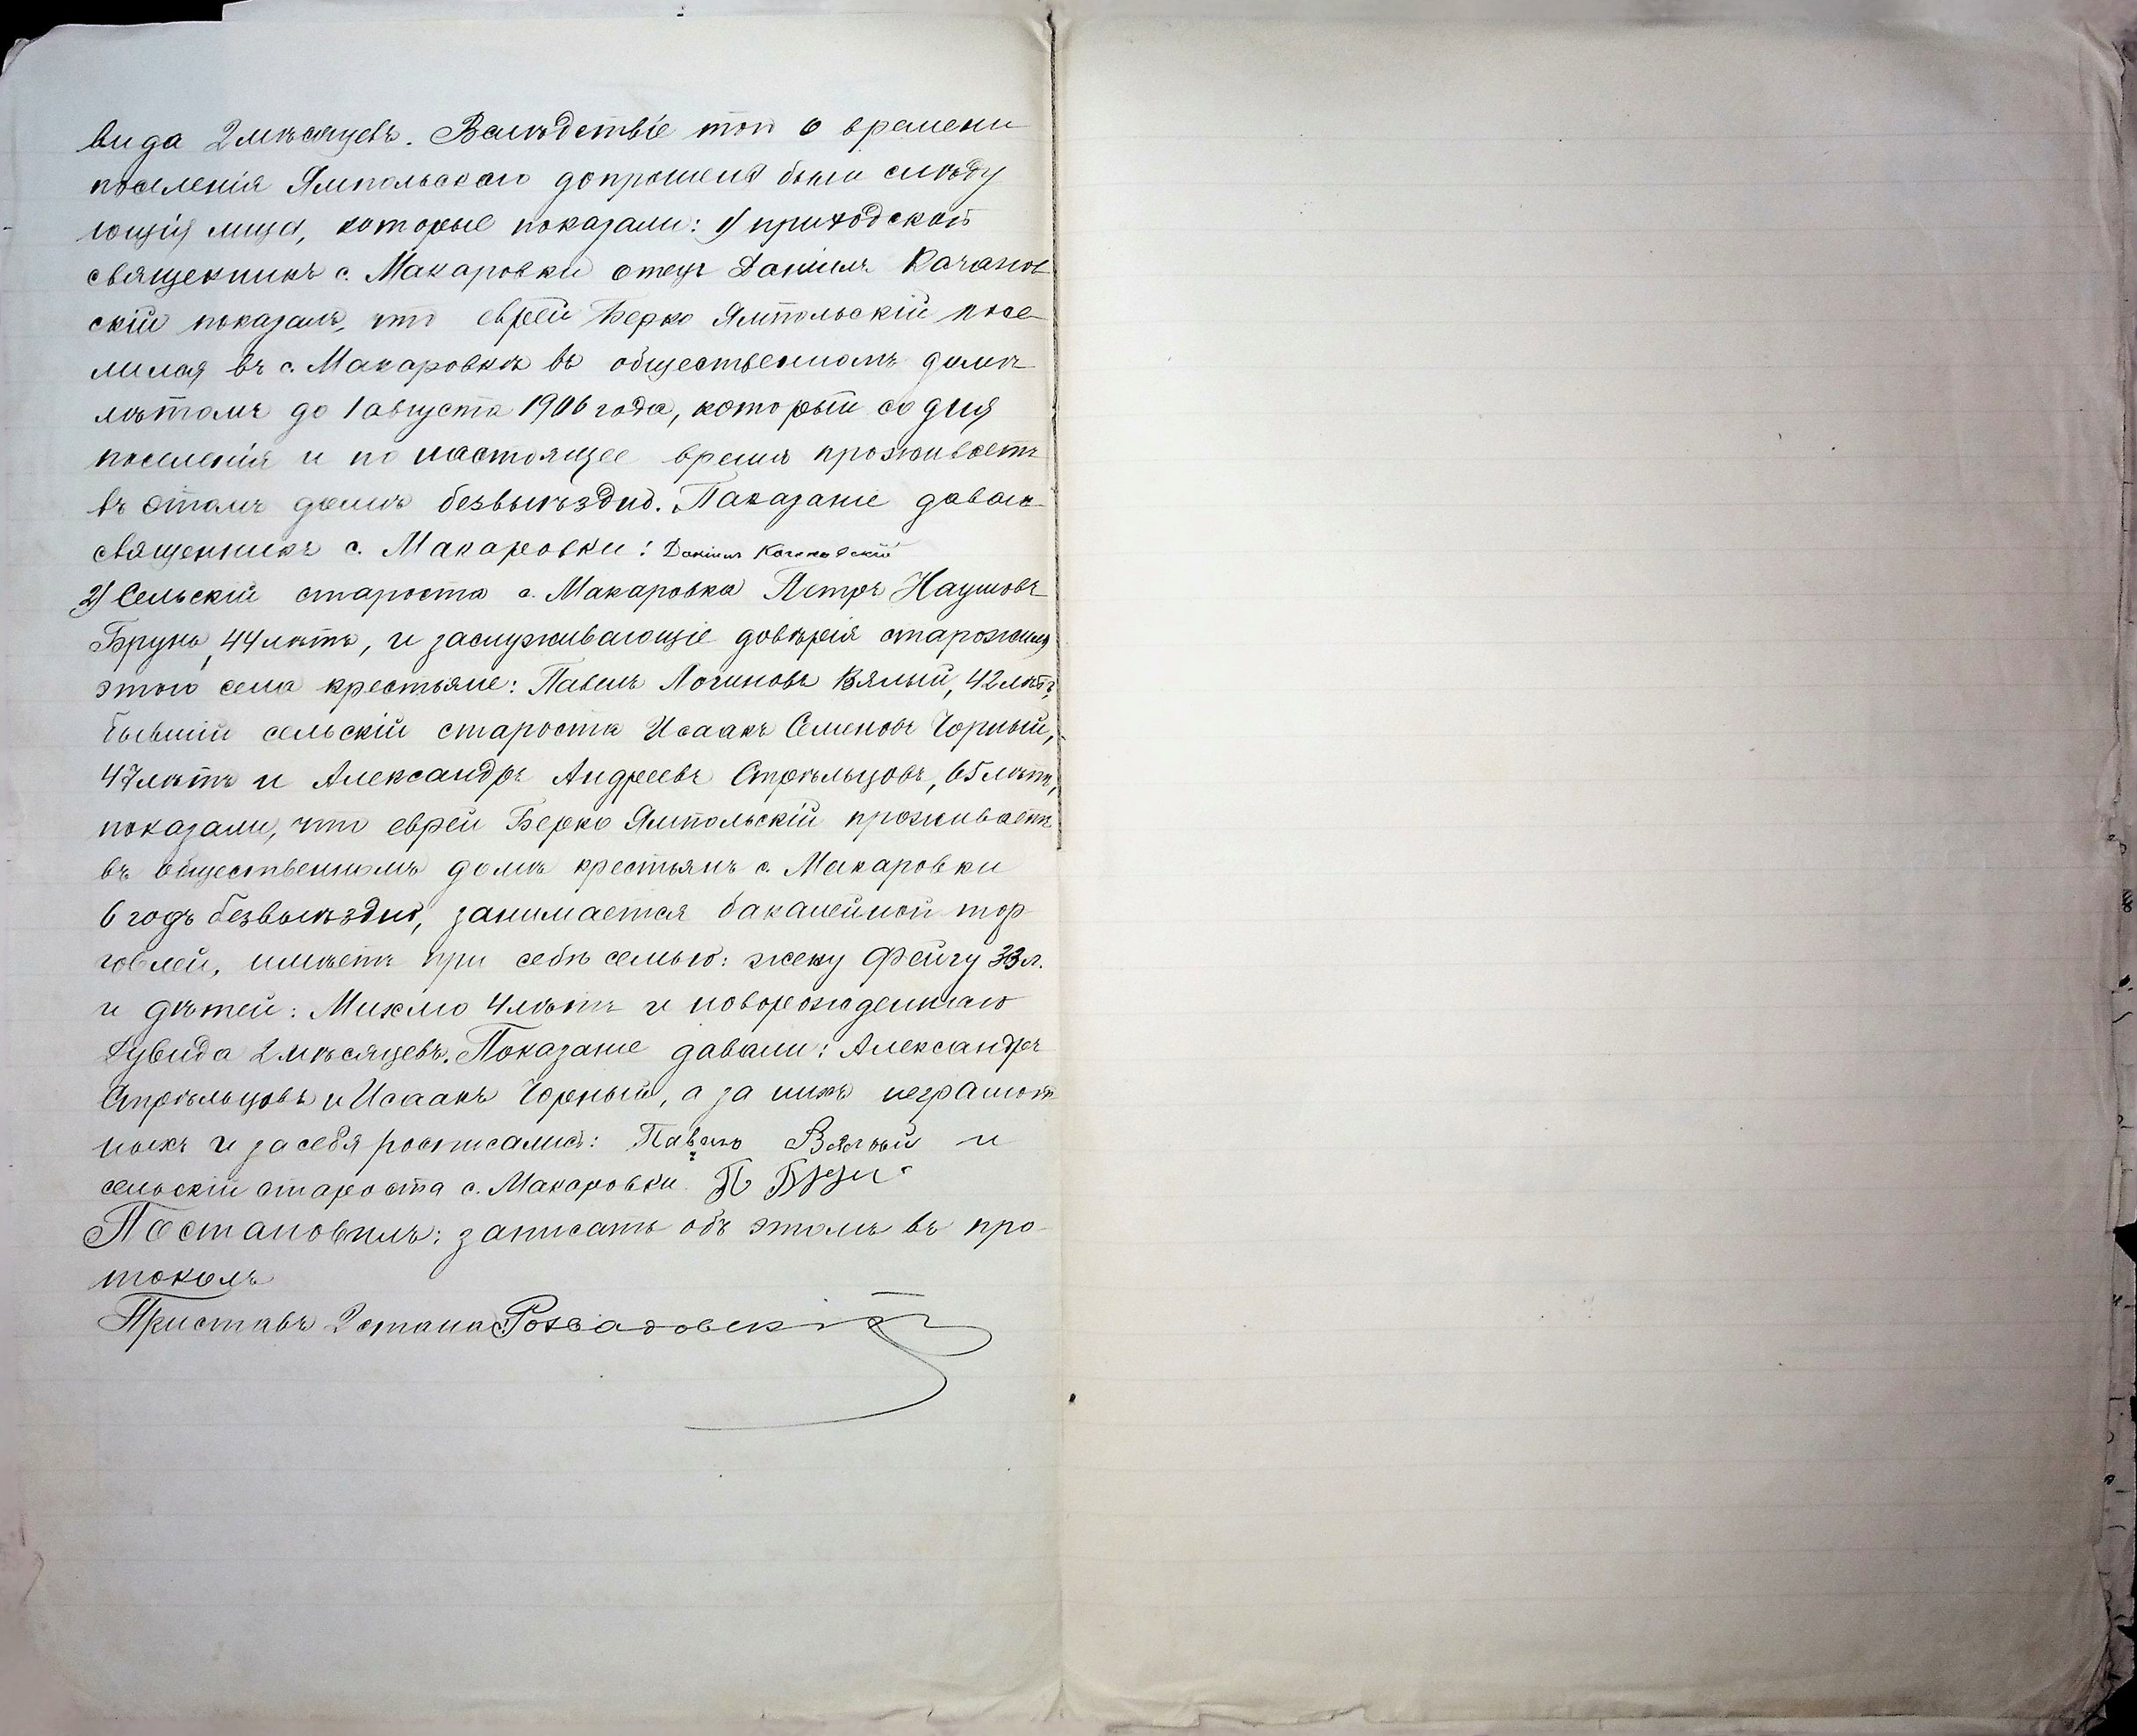 вида 2 мѣсяцевъ. Вслѣдствіе того о времени
поселенія Ямпольскаго допрошены были слѣду
ющія лица, которые показали: 1) приходской
священникъ с. Макаровки отецъ Даніилъ Качанов
скій показалъ, что еврей Берко Ямпольскій посе-
лился въ с. Макаровкѣ въ общественномъ домѣ
лѣтомъ до 1 августа 1906 года, который со дня
поселенія и по настоящее время проживаетъ
въ этомъ домѣ безвыѣздно. Показаніе давалъ
священникъ с. Макаровки: Даніилъ Качановскій
2) Сельскій староста с. Макаровка Петръ Наумовъ
Брунь, 44 лѣтъ, и заслуживающіе довѣрія старожилы
этого села крестьяне: Павелъ Логиновъ Вялый, 42 лѣтъ,
бывшій сельскій староста Исаакъ Семеновъ Чорный,
47 лѣтъ и Александръ Андреевъ Стрѣльцовъ, 65 лѣтъ,
показали, что еврей Берко Ямпольскій проживаетъ
въ общественномъ домѣ крестьянъ с. Макаровки
6 годъ безвыѣздно, занимается бакалейной тор-
говлей, имѣетъ при себѣ семью: жену Фейгу 33 л.
и дѣтей: Михлю 4 лѣтъ и новорожденнаго
Дувида 2 мѣсяцевъ. Показаніе давали: Александръ
Стрѣльцовъ и Исаакъ Чорный, а за нихъ неграмот
ныхъ и за себя росписались: Павелъ Вялый и
сельскій староста с. Макаровки П Брун
Постановилъ: записать объ этомъ въ про-
токолъ
Приставъ 2 стана Розвадовскій